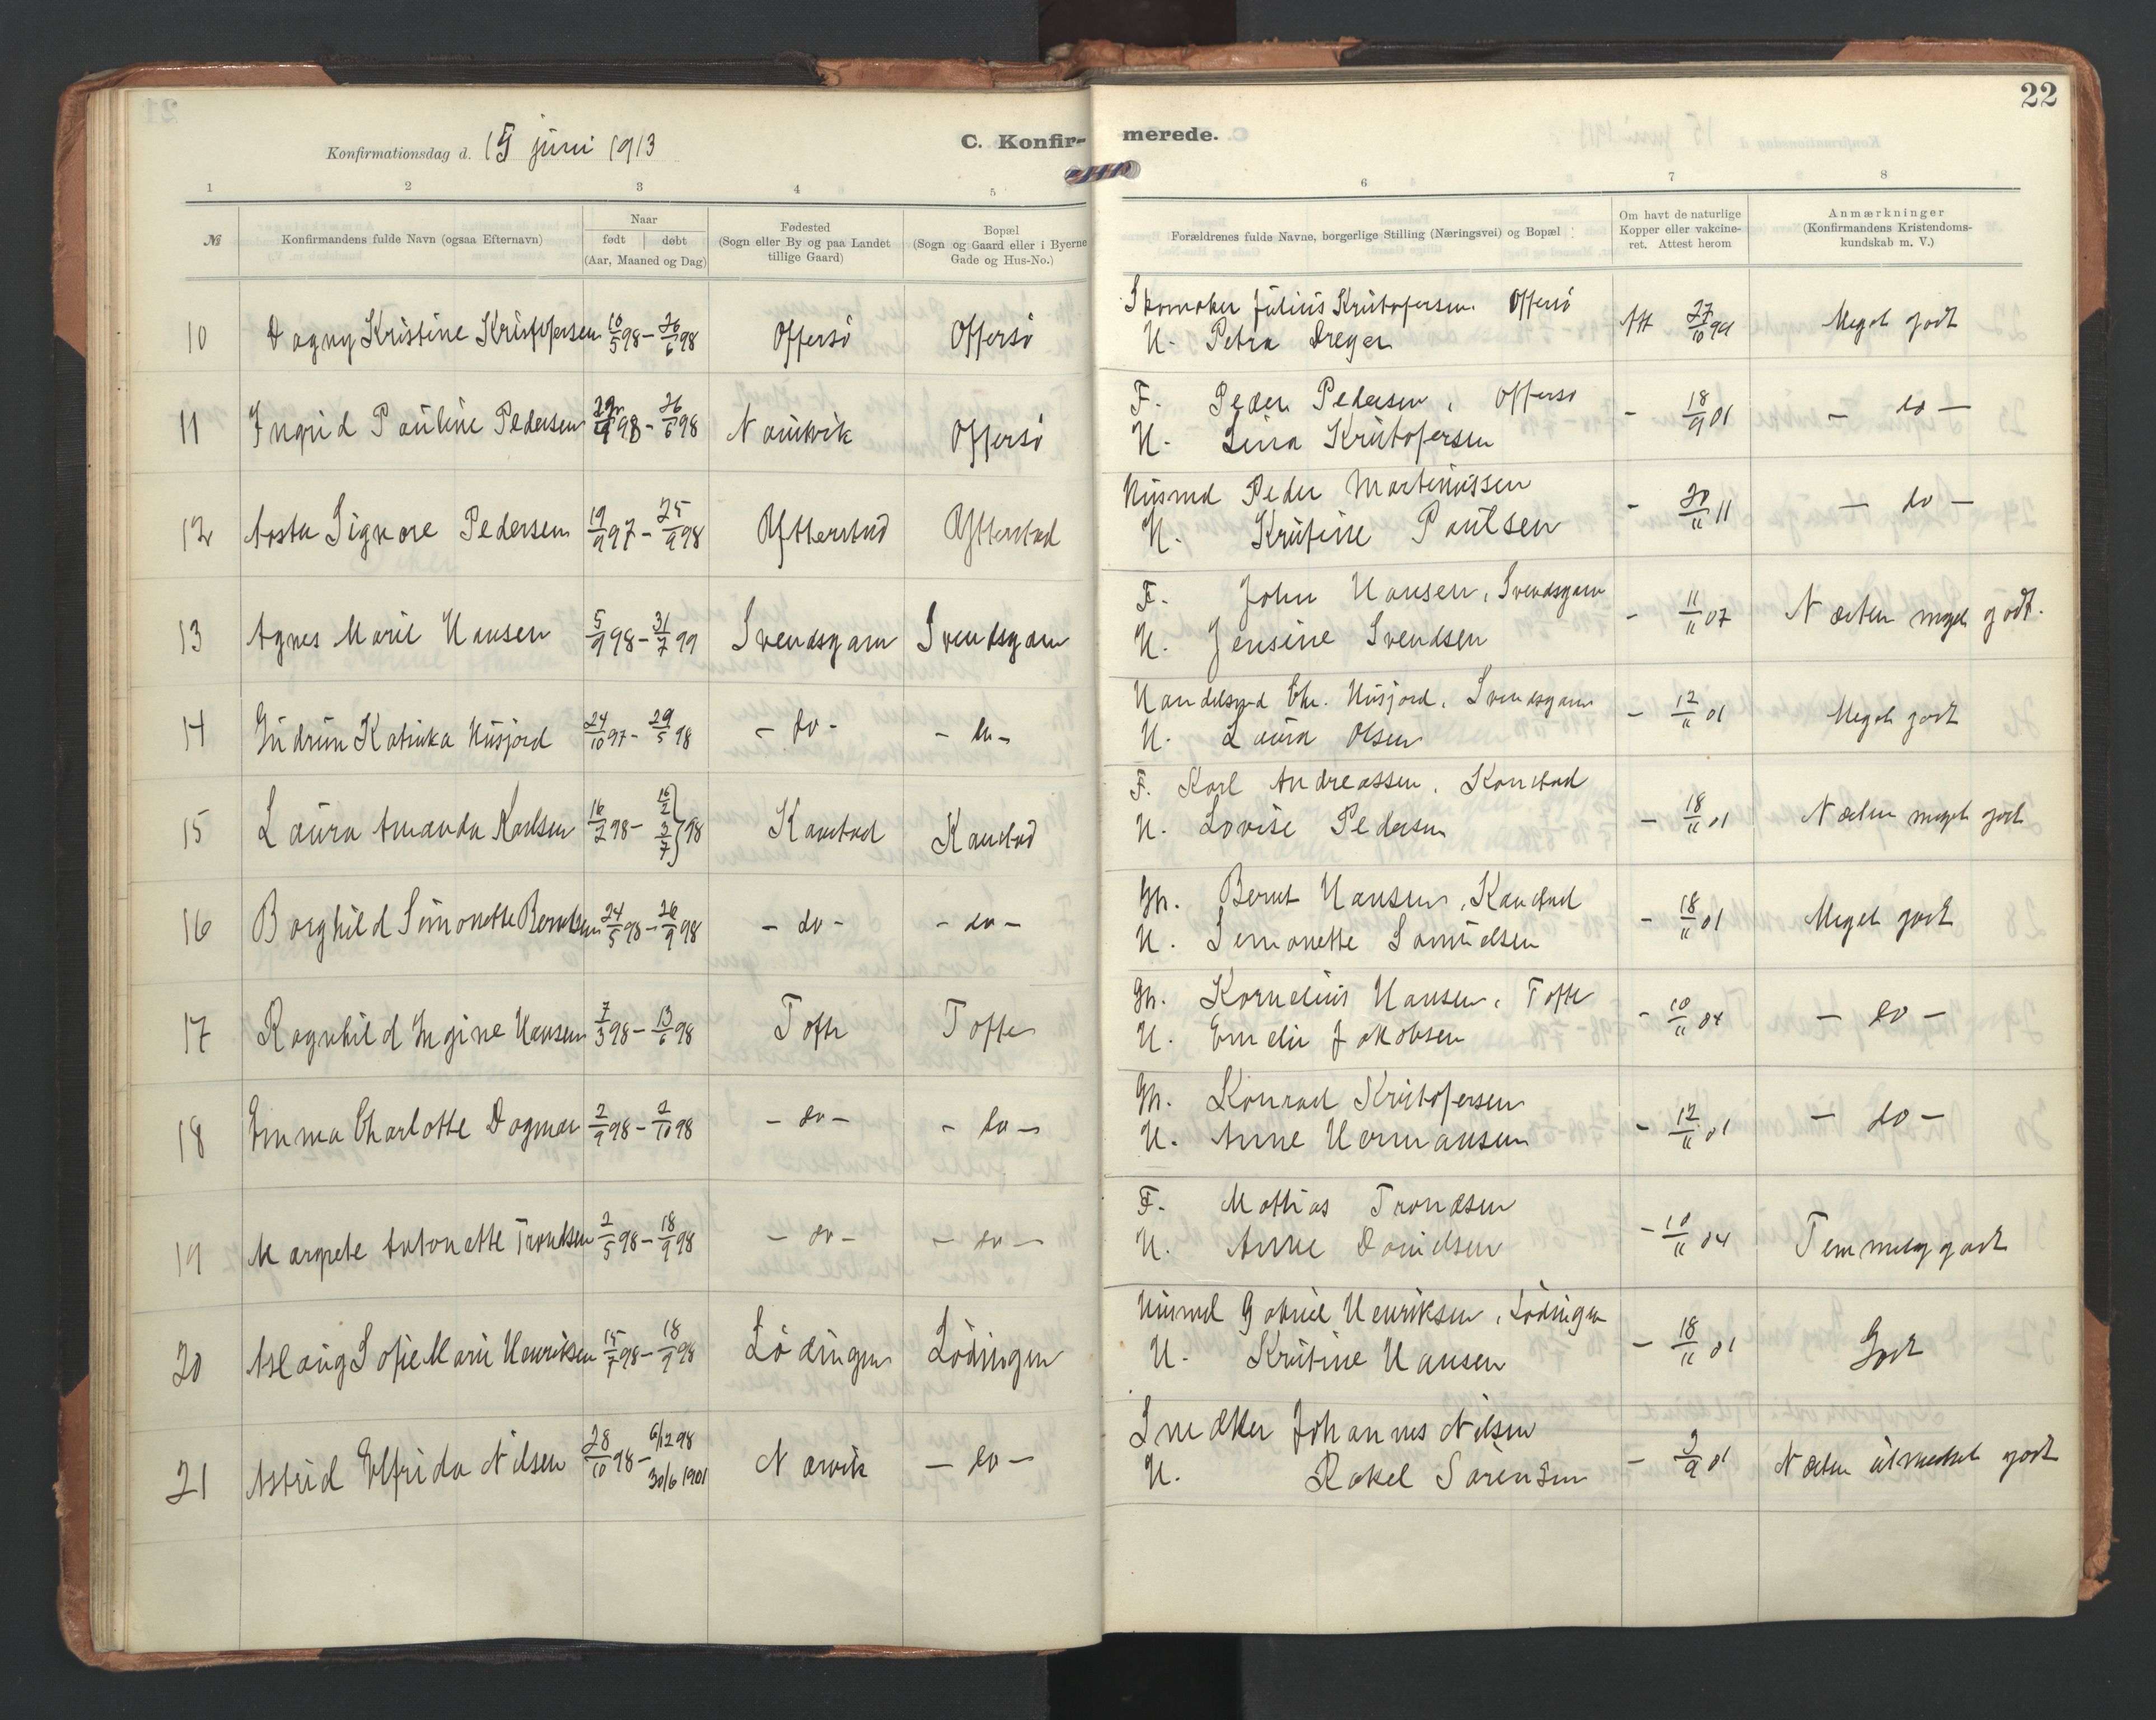 22
Konfirmationsdag d. 15 juni 1913
C. Konfir-
merede.
1 2 3 4 5 6 7 8
№
Konfirmandens fulde Navn (ogsaa Efternavn)
Naar
født | døbt
(Aar, Maaned og Dag)
Fødested
(Sogn eller By og paa Landet
tillige Gaard)
Bopæl
(Sogn og Gaard eller i Byerne
Gade og Hus-No.)
Forældrenes fulde Navne, borgerlige Stilling (Næringsvei) og Bopæl
Om havt de naturlige
Kopper eller vakcine-
ret. Attest herom
Anmærkninger
(Konfirmandens Kristendoms-
kundskab m. V.)
10 Dagny Kristine Kristofersen 10/5 98 - 26/6 98 Offersø Offersø
Skomaker Julius Kristofersen Offersø
H. Petra Dreyer
Att 27/10 94 Meget godt
11 Ingrid Pauline Pedersen 98 - 26/6 98 Narvik Offersø
F. Peder Pedersen, Offersø
H. Lina Kristofersen
- 18/9 01 - do -
12 Aasta Signore Pedersen 19/9 97 - 25/9 98 Ytterstad Ytterstad
Husmd Peder Martinussen
H. Kristine Paulsen
- 20/11 11 - do -
13 Agnes Marie Hansen 5/9 98 - 31/7 99 Svendsgam Svendsgam
F. John Hansen, Svendsgam
H. Jensine Svendsen
- 11/11 07 Næsten meget godt.
14 Gudrun Katinka Husjord 24/10 97 - 29/5 98 - do - - do -
Handelsmd Chr. Husjord, Svendsgam
H. Laura Olsen
- 12/11 01 Meget godt
15 Laura Amanda Karlsen 16/2 98 - 16/2 } 3/7 } 98 Kanstad Kanstad
F. Karl Andreassen, Kanstad
H. Lovise Pedersen
- 18/11 01 Næsten meget godt
16 Borghild Simonette Berntsen 24/5 98 - 26/9 98 - do - - do -
Gb. Bernt Hansen, Kanstad
H. Simonette Samuelsen
- 18/11 01 Meget godt
17 Ragnhild Ingine Hansen 7/3 98 - 13/6 98 Tofte Tofte
Gb. Kornelius Hansen, Tofte
H. Emelie Jakobsen
- 10/11 04 - do -
18 Emma Charlotte Dagmar 2/9 98 - 2/10 98 - do - - do -
Gb. Konrad Kristofersen
H. Anne Hermansen
- 12/11 01 - do -
19 Margrete Antonette Trondsen 2/5 98 - 18/9 98 - do - - do -
F. Mathias Trondsen
H. Anne Danielsen
- 10/11 04 Temmelig godt
20 Aslaug Sofie Marie Henriksen 15/7 98 - 18/9 98 Lødingen Lødingen
Husmd Gabriel Henriksen, Lødingen
H. Kristine Hansen
- 18/11 01 Godt
21 Astrid Elfrida Nilsen 28/10 98 - 6/12 98 30/6 1901 Narvik - do -
Snedker Johannes Nilsen
H. Rakel Sørensen
- 3/9 01 Næsten utmerket godt